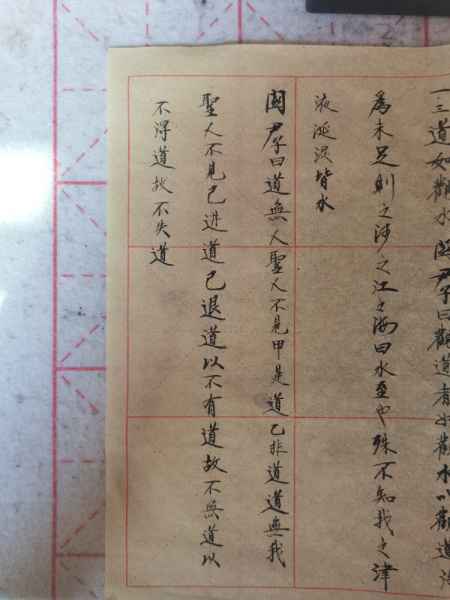 一三道如觀水 關尹子曰觀道者如觀水以觀道
為未足則之河之江之海曰水至也殊不知我之津
液涎淚皆水
關尹子曰道無人聖人不見甲是道乙非道道無我
聖人不見己進道己退道以不有道故不無道以
不得道故不失道